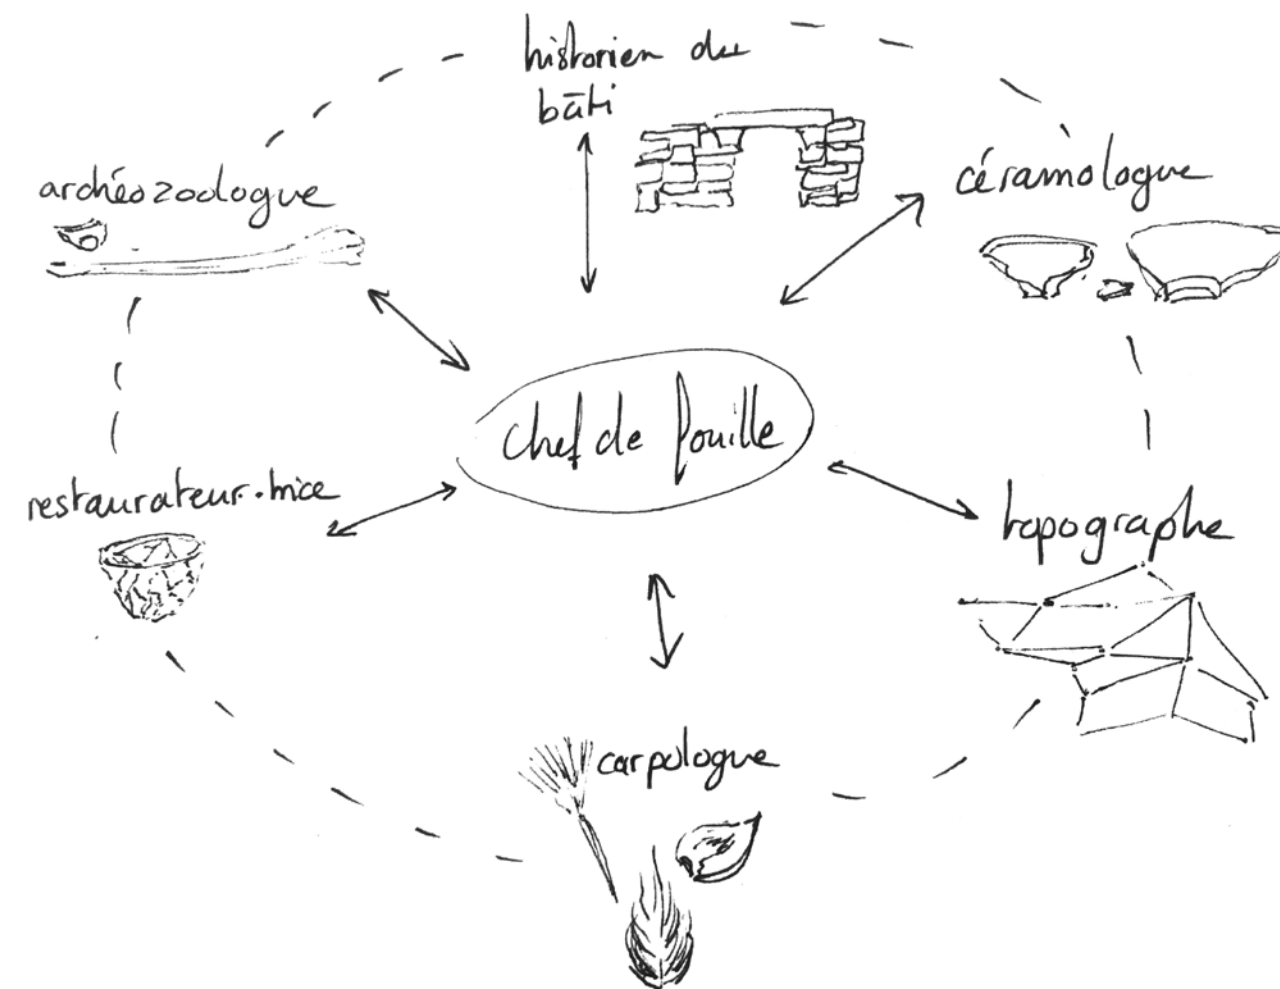 historien du
bâti
archéozoologue
céramologue
chef de fouille
restaurateur.trice
topographe
carpologue